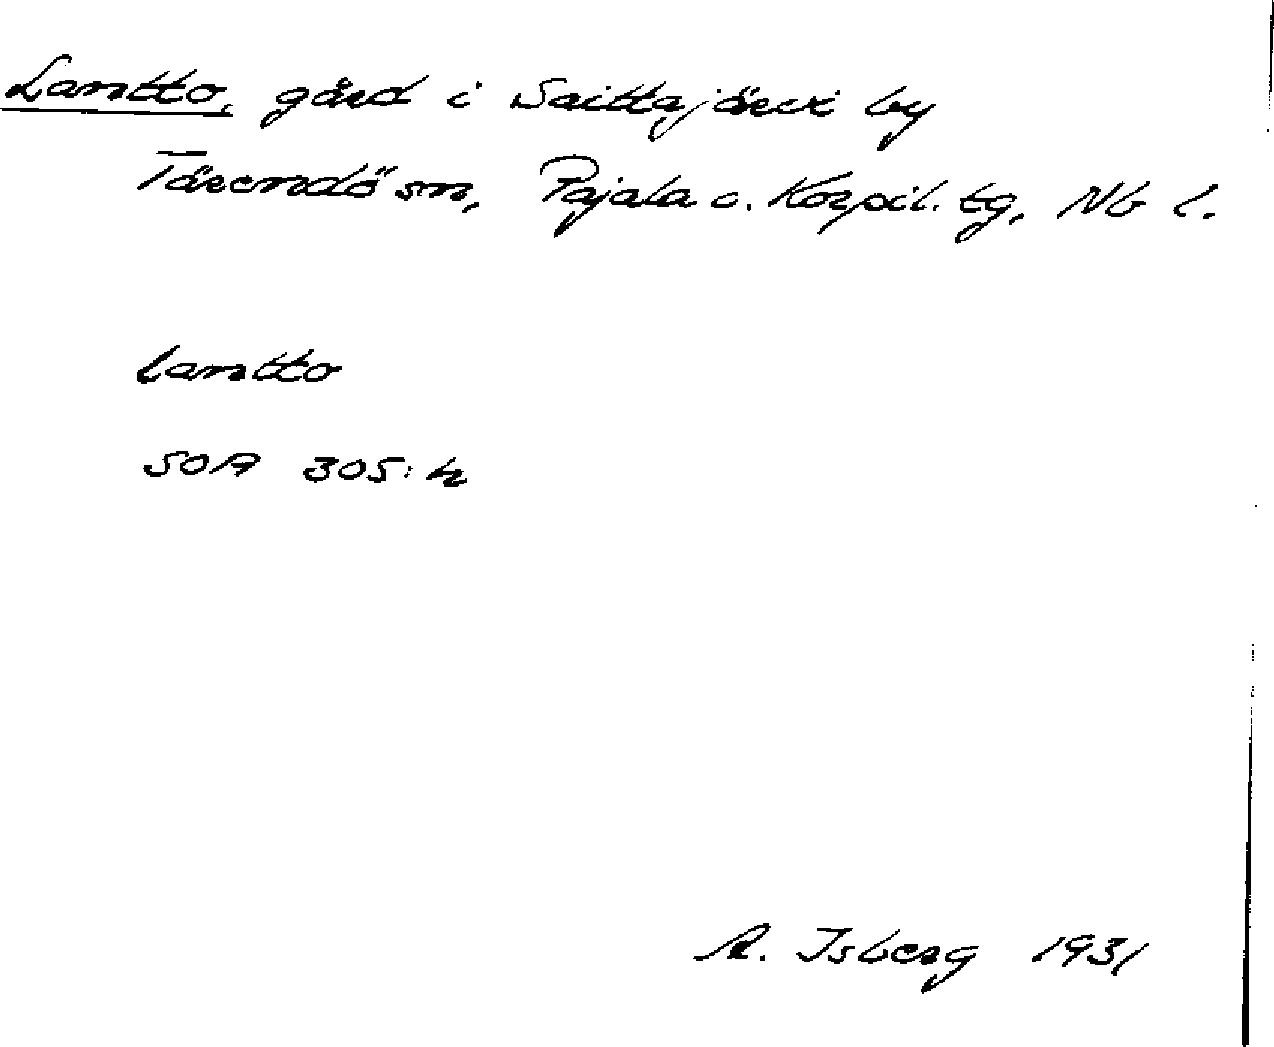 Lantto, gård i Saittajärvi by
Tärendö sn, Pajala o. Korpil. tg, Nb l.
lantto
SOA 305:4
A. Isberg 1931